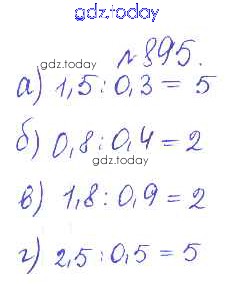 gdz.today
№ 895.
gdz.today
а) 1,5 : 0,3 = 5
б) 0,8 : 0,4 = 2
gdz.today
в) 1,8 : 0,9 = 2
г) 2,5 : 0,5 = 5
gdz.today